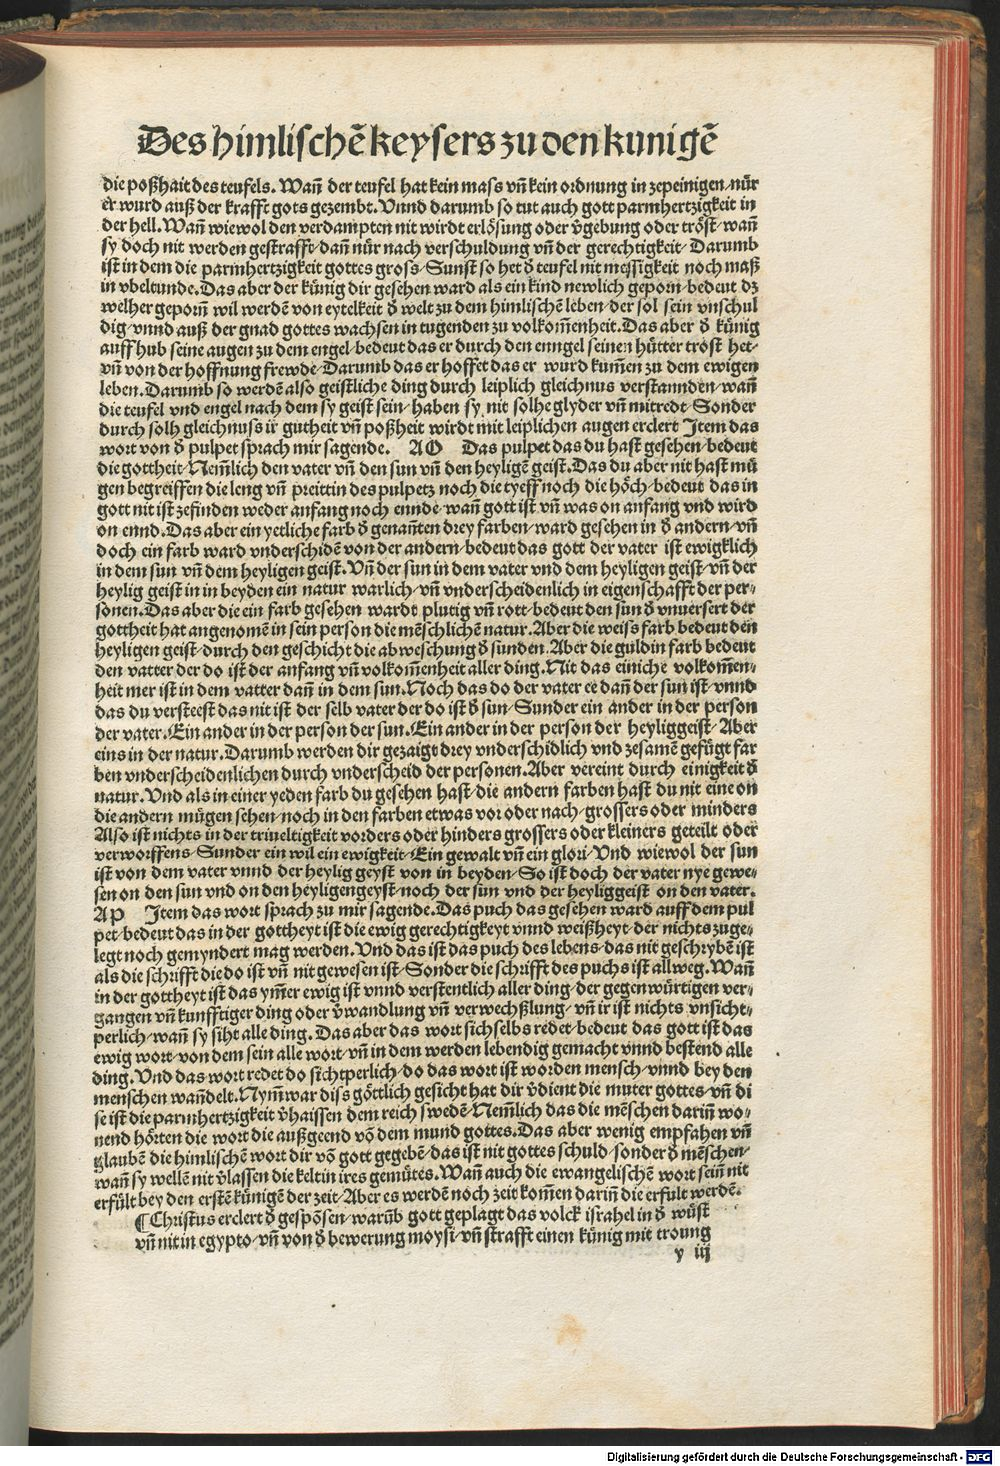 Des himlischē keysers zu den kunigē
die poßhait des teufels. Wañ der teufel hat kein mass vñ kein ordnung in zepeinigen/nür
er wurd auß der krafft gots gezembt. Vnnd darumb so tut auch gott parmhertzigkeit in
der hell. Wañ wiewol den verdampten nit wirdt erlösung oder v̄gebung oder tröst/wañ
sy doch nit werden gestrafft/dañ nür nach verschuldung vñ der gerechtigkeit/Darumb
ist in dem die parmhertzigkeit gottes gross/Sunst so het d̄ teufel nit messigkeit noch maß
in vbeltunde. Das aber der künig dir gesehen ward als ein kind newlich geporn/bedeut dz
welher geporñ wil werdē von eytelkeit d̄ welt zu dem himlischē leben/der sol sein vnschul
dig/vnnd auß der gnad gottes wachsen in tugenden zu volkom̄enheit. Das aber d̄ künig
auffhub seine augen zu dem engel/bedeut das er durch den enngel seinen hütter tröst het/
vñ von der hoffnung frewde/Darumb das er hoffet das er wurd kum̄en zu dem ewigen
leben. Darumb so werdē also geistliche ding durch leiplich gleichnus verstannden/wañ
die teufel vnd engel nach dem sy geist sein/haben sy nit solhe glyder vñ mitredt/Sonder
durch solh gleichnuss ir gutheit vñ poßheit wirdt mit leiplichen augen erclert Item das
wort von d̄ pulpet sprach mir sagende. AO Das pulpet das du hast gesehen/bedeut
die gottheit/Nem̄lich den vater vñ den sun vñ den heyligē geist. Das du aber nit hast mü
gen begreiffen die leng vñ preittin des pulpetz noch die tyeff noch die höch/bedeut das in
gott nit ist zefinden weder anfang noch ennde/wañ gott ist vñ was on anfang vnd wird
on ennd. Das aber ein yetliche farb d̄ genañten drey farben/ward gesehen in d̄ andern/vñ
doch ein farb ward vnderschidē von der andern/bedeut das gott der vater ist ewigklich
in dem sun vñ dem heyligen geist. Vñ der sun in dem vater vnd dem heyligen geist/vñ der
heylig geist in in beyden ein natur warlich/vñ vnderscheidenlich in eigenschafft der per/
sonen. Das aber die ein farb gesehen wardt plutig vñ rott/bedeut den sun d̄ vnuersert der
gottheit hat angenomē in sein person die mēschlichē natur. Aber die weiss farb bedeut den
heyligen geist/durch den geschicht die abweschung d̄ sunden. Aber die guldin farb bedeut
den vatter der do ist der anfang vñ volkom̄enheit aller ding. Nit das einiche volkom̄en/
heit mer ist in dem vatter dañ in dem sun. Noch das do der vater ee dañ der sun ist/vnnd
das du versteest das nit ist der selb vater der do ist d̄ sun/Sunder ein ander in der person
der vater. Ein ander in der person der sun. Ein ander in der person der heyliggeist/Aber
eins in der natur. Darumb werden dir gezaigt drey vnderschidlich vnd zesamē gefügt far
ben vnderscheidenlichen durch vnderscheid der personen. Aber vereint durch einigkeit d̄
natur. Vnd als in einer yeden farb du gesehen hast/die andern farben hast du nit eine on
die andern mügen sehen/noch in den farben etwas vor oder nach/grossers oder minders
Also ist nichts in der triueltigkeit vorders oder hinders grossers oder kleiners geteilt oder
verworffens/Sunder ein wil ein ewigkeit/Ein gewalt vñ ein glori/Vnd wiewol der sun
ist von dem vater vnnd der heylig geyst von in beyden/So ist doch der vater nye gewe/
sen on den sun vnd on den heyligengeyst/noch der sun vnd der heyliggeist on den vater.
AP Item das wort sprach zu mir sagende. Das puch das gesehen ward auff dem pul
pet/bedeut das in der gottheyt ist die ewig gerechtigkeyt vnnd weißheyt/der nichts zuge/
legt noch gemyndert mag werden. Vnd das ist das puch des lebens/das nit geschrybē ist
als die schrifft die do ist vñ nit gewesen ist/Sonder die schrifft des puchs ist allweg. Wañ
in der gottheyt ist das ym̄er ewig ist vnnd verstentlich aller ding/der gegenwürtigen ver/
gangen vñ kunfftiger ding oder v̄wandlung vñ verwechßlung/vñ ir ist nichts vnsicht/
perlich/wañ sy siht alle ding. Das aber das wort sich selbs redet/bedeut das gott ist das
ewig wort/von dem sein alle wort/vñ in dem werden lebendig gemacht vnnd bestend alle
ding. Vnd das wort redet do sichtperlich/do das wort ist worden mensch/vnnd bey den
menschen wañdelt. Nym̄ war diss göttlich gesicht hat dir v̄dient die muter gottes/vñ di
se ist die parmhertzigkeit v̄haissen dem reich swedē/Nem̄lich das die mēschen dariñ wo/
nend hörten die wort die außgeend vō dem mund gottes. Das aber wenig empfahen vñ
glaubē die himlischē wort dir vō gott gegebē/das ist nit gottes schuld/sonder d̄ mēschen/
wañ sy wellē nit v̄lassen die keltin ires gemütes. Wañ auch die ewangelischē wort seiñ nit
erfült bey den erstē künigē der zeit/Aber es werdē noch zeit kom̄en dariñ die erfült werdē.
¶Christus erclert d̄ gespōsen/warūb gott geplagt das volck israhel in d̄ wüst
vñ nit in egypto/vñ von d̄ bewerung moysi/vñ strafft einen künig mit troung
y iij
Digitalisierung gefördert durch die Deutsche Forschungsgemeinschaft - DFG